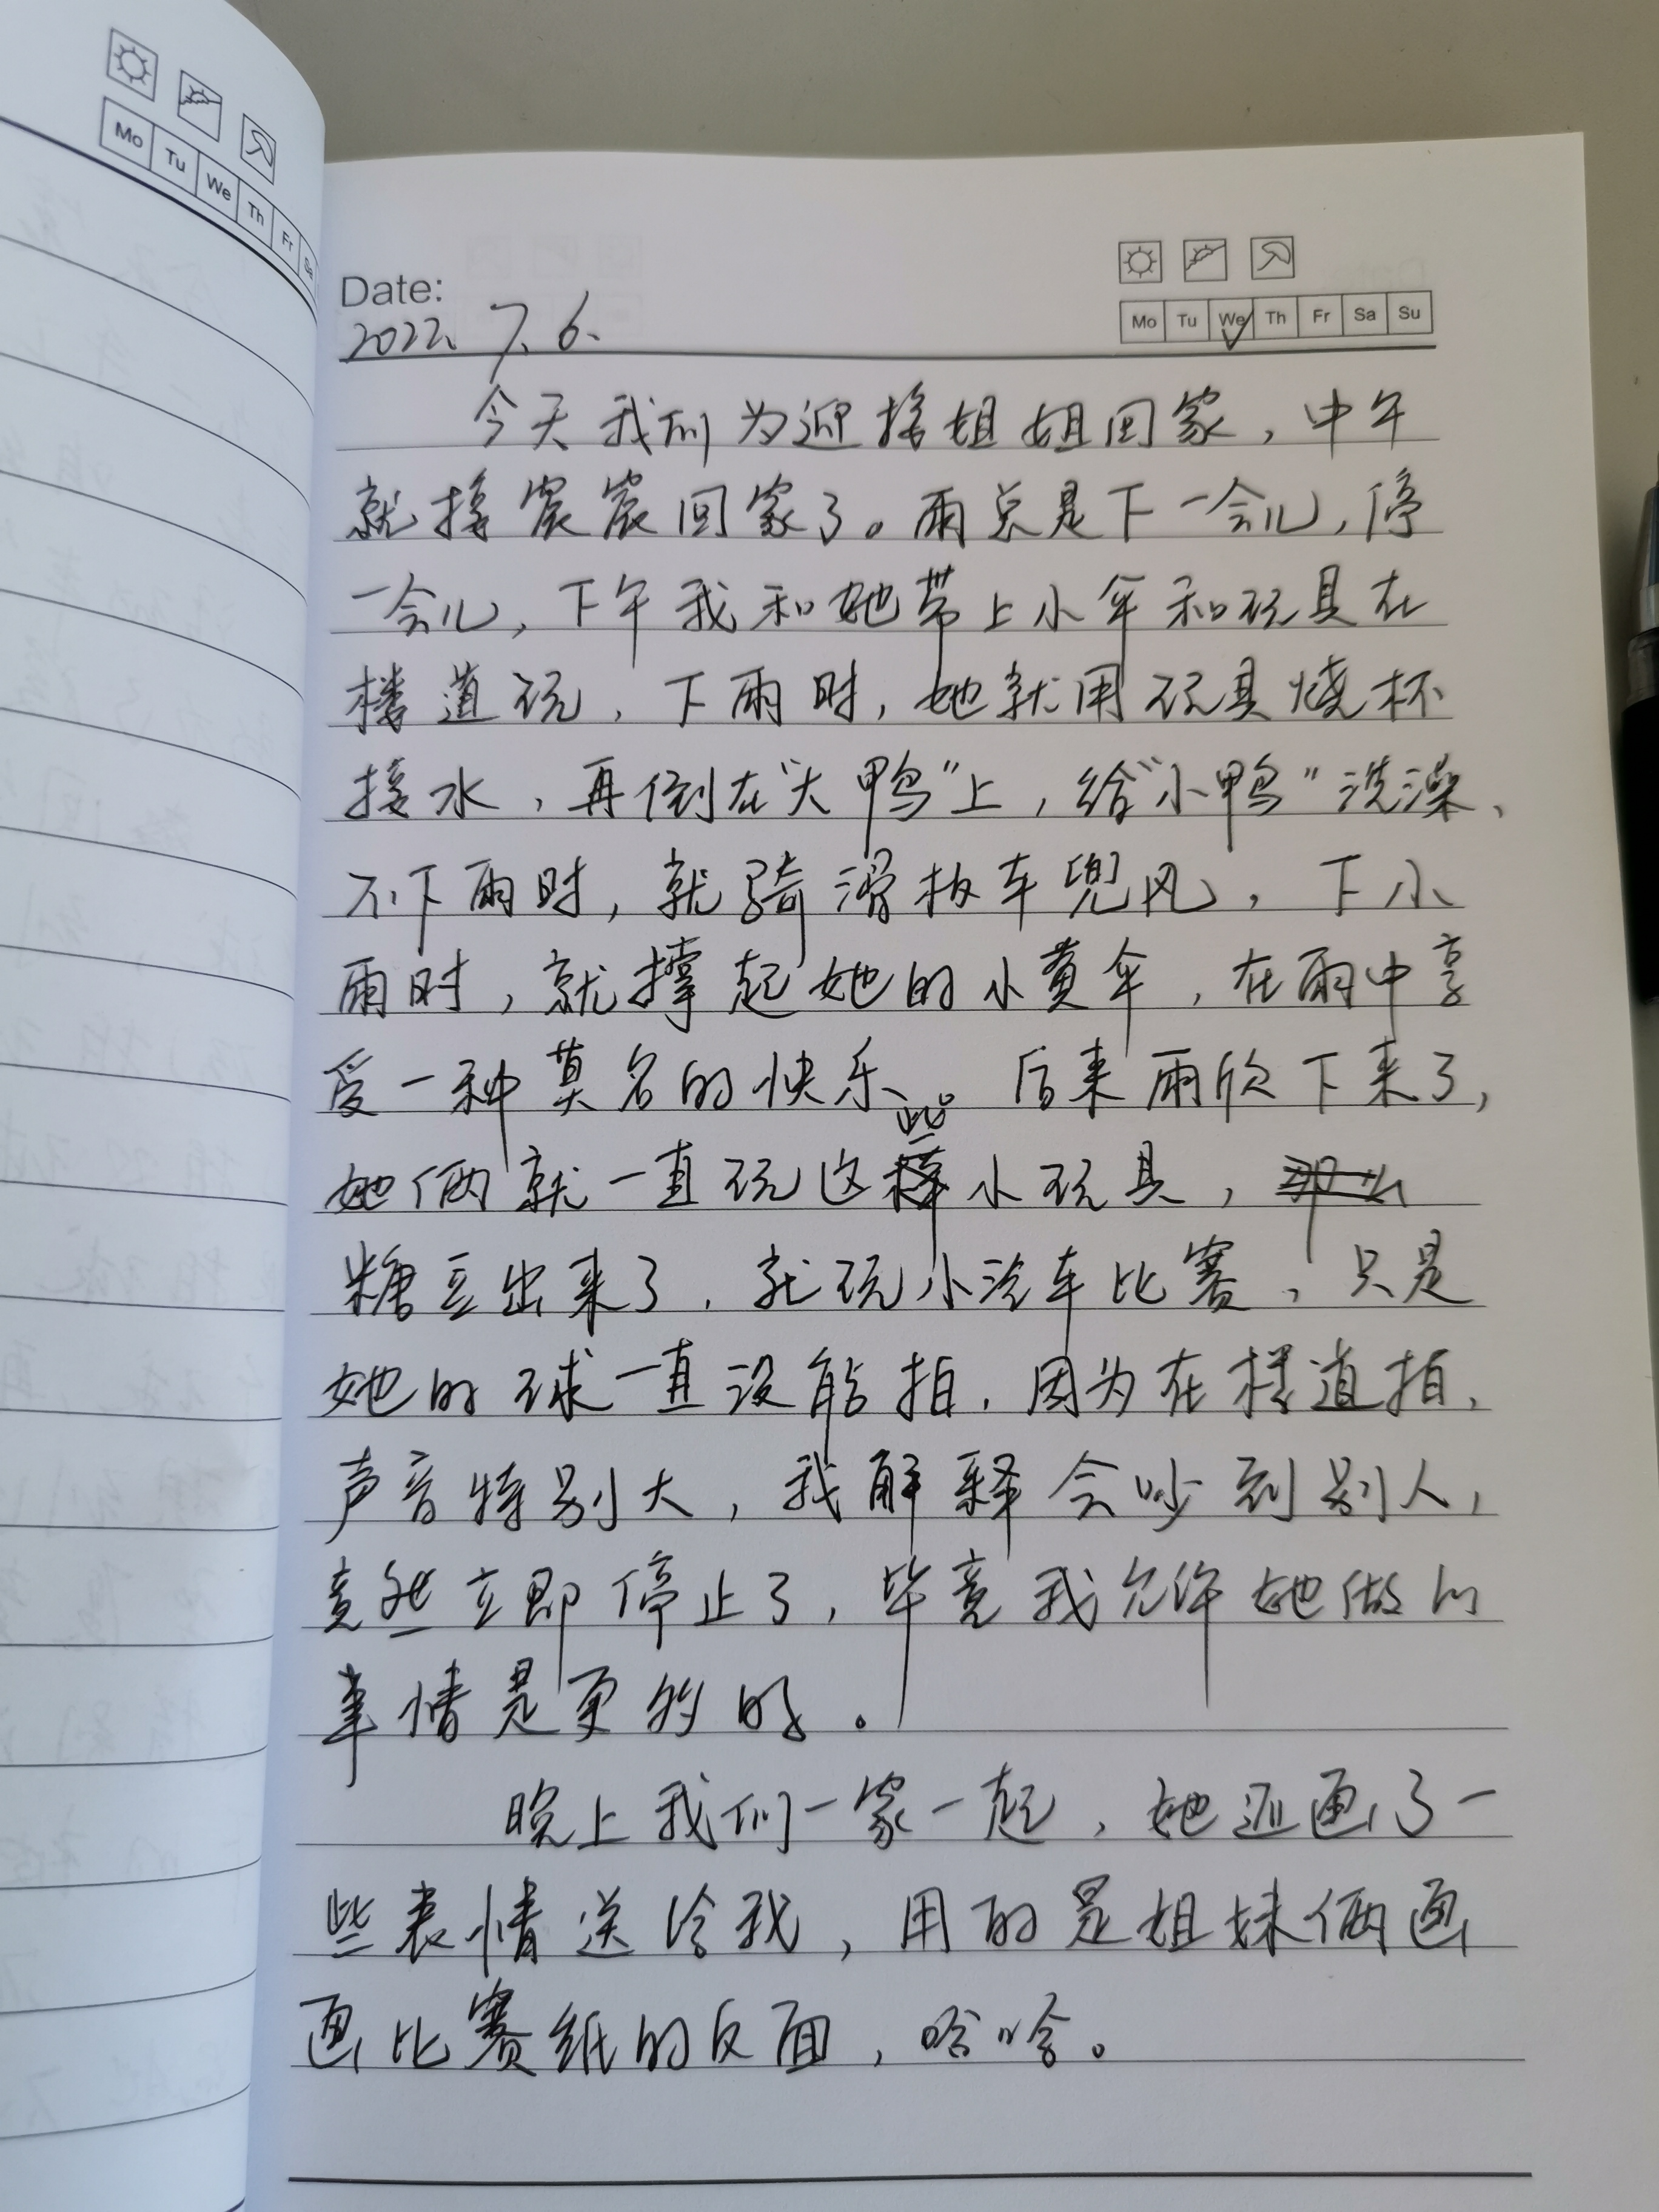 Mo Tu We Th Fr Sa
Date:
2022. 7. 6.
Mo Tu We Th Fr Sa Su
今天我们为迎接姐姐回家，中午
就接宸宸回家了。雨总是下一会儿，停
一会儿，下午我和她带上小车和玩具在
楼道玩，下雨时，她就用玩具烧杯
接水，再倒在“大鸭”上，给“小鸭”洗澡、
不下雨时，就骑滑板车兜风，下小
雨时，就撑起她的小黄伞，在雨中享
受一种莫名的快乐。后来雨欣下来了，
她俩就一直玩这些小玩具，
糖豆出来了，就玩小汽车比赛，只是
她的球一直没能拍，因为在楼道拍，
声音特别大，我解释会吵到别人，
竟然立即停止了，毕竟我允许她做的
事情是更多的。
晚上我们一家一起，她还画了一
些表情送给我，用的是姐妹俩画
画比赛纸的反面，哈哈。